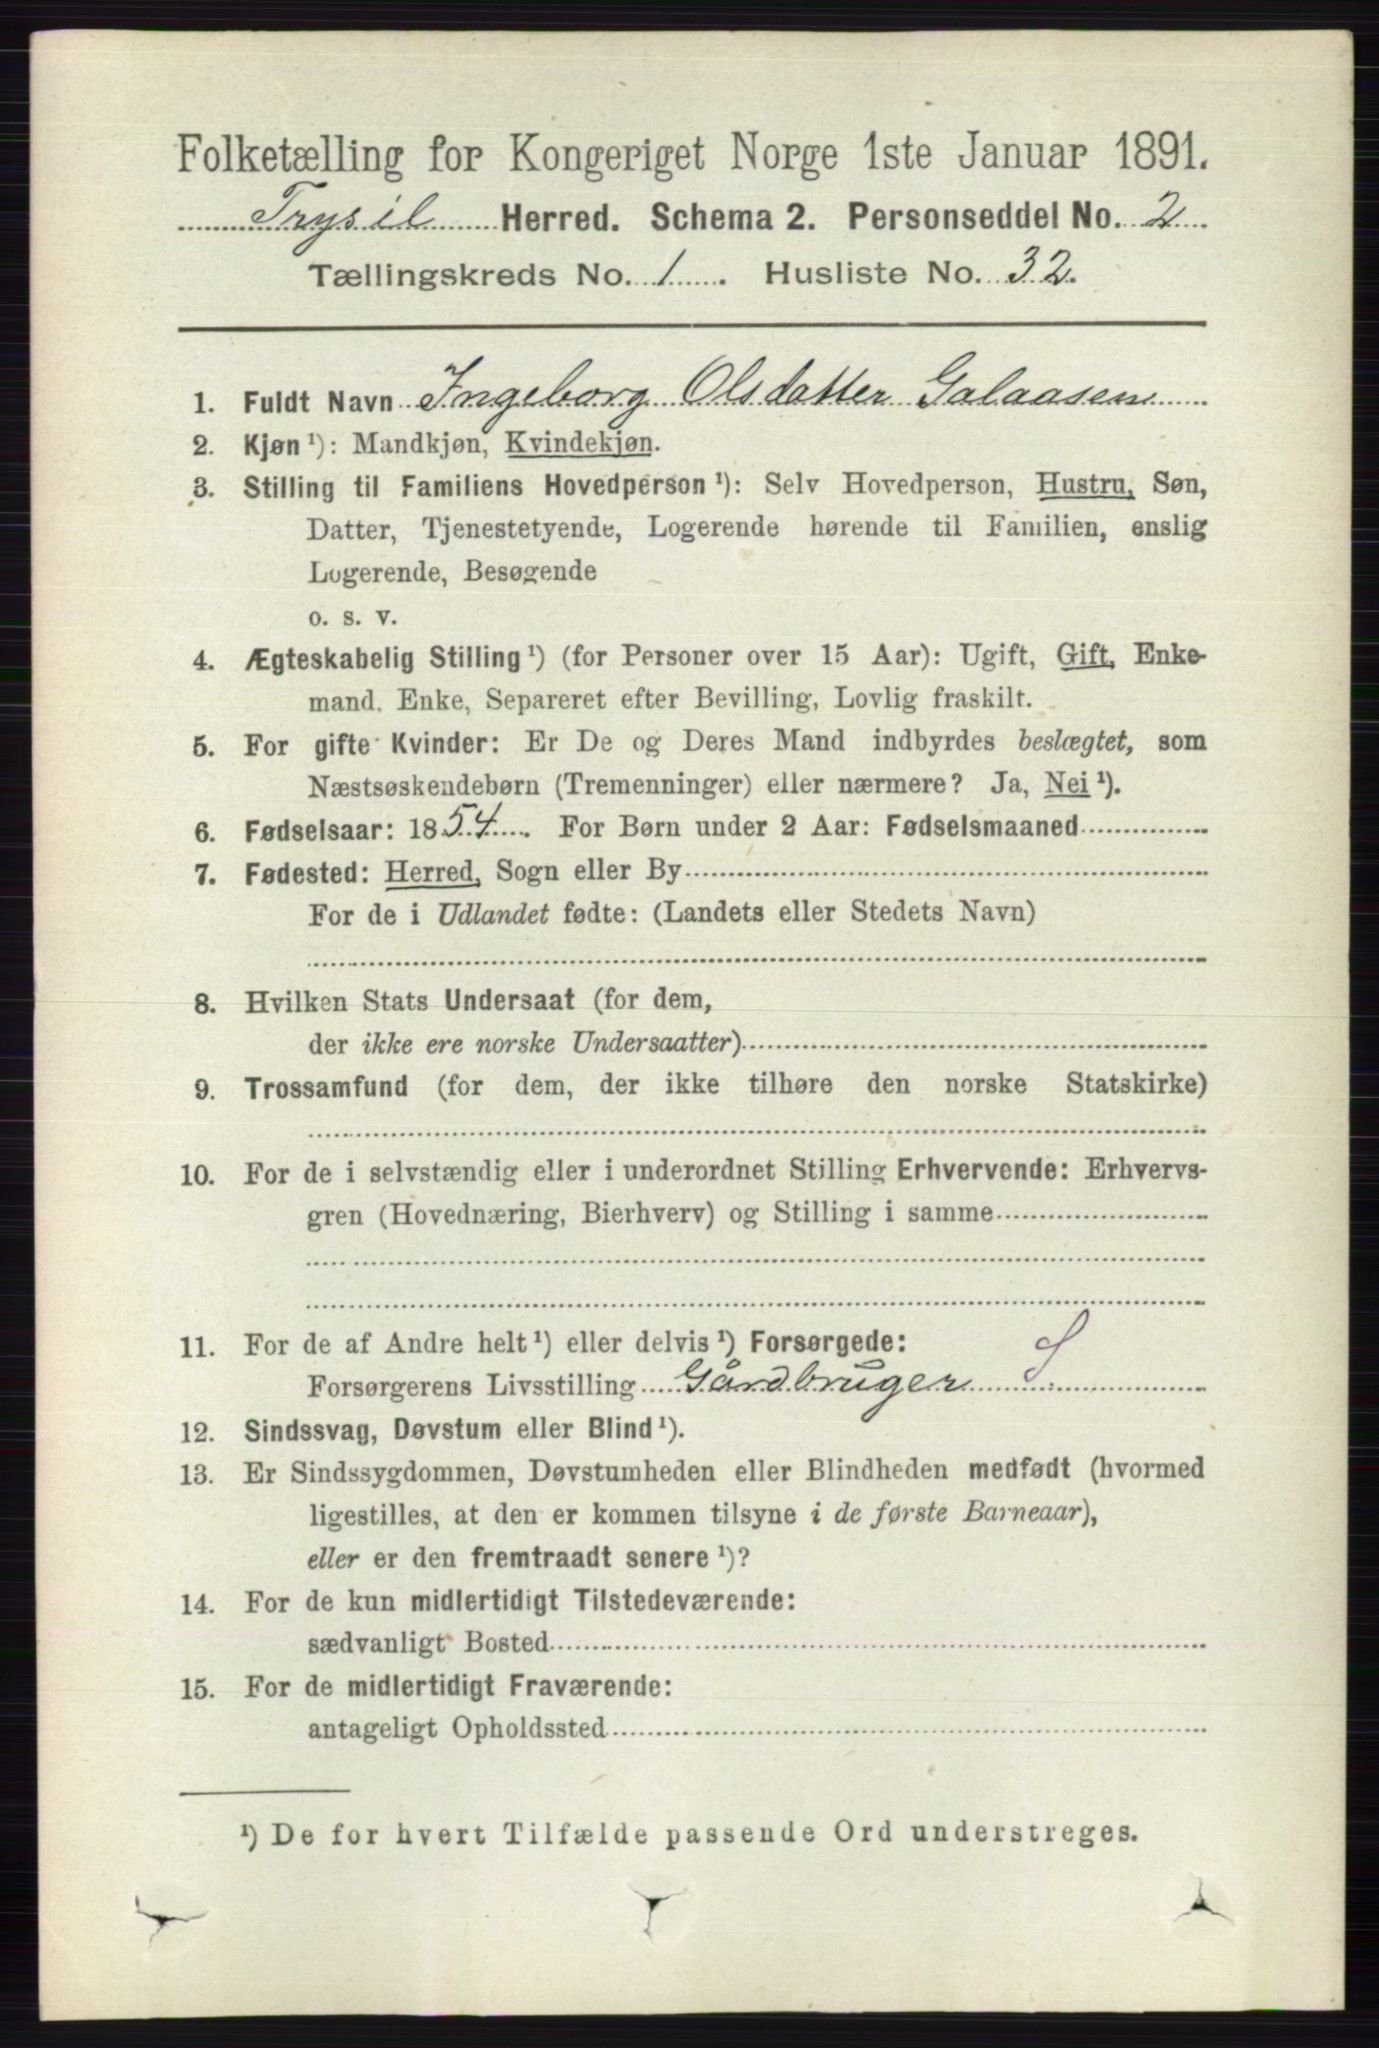 Folketælling for Kongeriget Norge 1ste Januar 1891.
Trysil Herred. Schema 2. Personseddel No. 2
Tællingskreds No. 1. Husliste No. 32.
1. Fuldt Navn Ingeborg Olsdatter Galaasen
2. Kjøn¹): Mandkjøn, Kvindekjøn.
3. Stilling til Familiens Hovedperson¹): Selv Hovedperson, Hustru, Søn,
Datter, Tjenestetyende, Logerende hørende til Familien, enslig
Logerende, Besøgende
o. s. v.
4. Ægteskabelig Stilling¹) (for Personer over 15 Aar): Ugift, Gift, Enke-
mand, Enke, Separeret efter Bevilling, Lovlig fraskilt.
5. For gifte Kvinder: Er De og Deres Mand indbyrdes beslægtet, som
Næstsøskendebørn (Tremenninger) eller nærmere? Ja, Nei¹).
6. Fødselsaar: 1854. For Børn under 2 Aar: Fødselsmaaned
7. Fødested: Herred, Sogn eller By
For de i Udlandet fødte: (Landets eller Stedets Navn)
8. Hvilken Stats Undersaat (for dem,
der ikke ere norske Undersaatter)
9. Trossamfund (for dem, der ikke tilhøre den norske Statskirke)
10. For de i selvstændig eller i underordnet Stilling Erhvervende: Erhvervs-
gren (Hovednæring, Bierhverv) og Stilling i samme
11. For de af Andre helt¹) eller delvis¹) Forsørgede: S
Forsørgerens Livsstilling Gårdbruger
12. Sindssvag, Døvstum eller Blind¹).
13. Er Sindssygdommen, Døvstumheden eller Blindheden medfødt (hvormed
ligestilles, at den er kommen tilsyne i de første Barneaar),
eller er den fremtraadt senere¹)?
14. For de kun midlertidigt Tilstedeværende:
sædvanligt Bosted
15. For de midlertidigt Fraværende:
antageligt Opholdssted
¹) De for hvert Tilfælde passende Ord understreges.